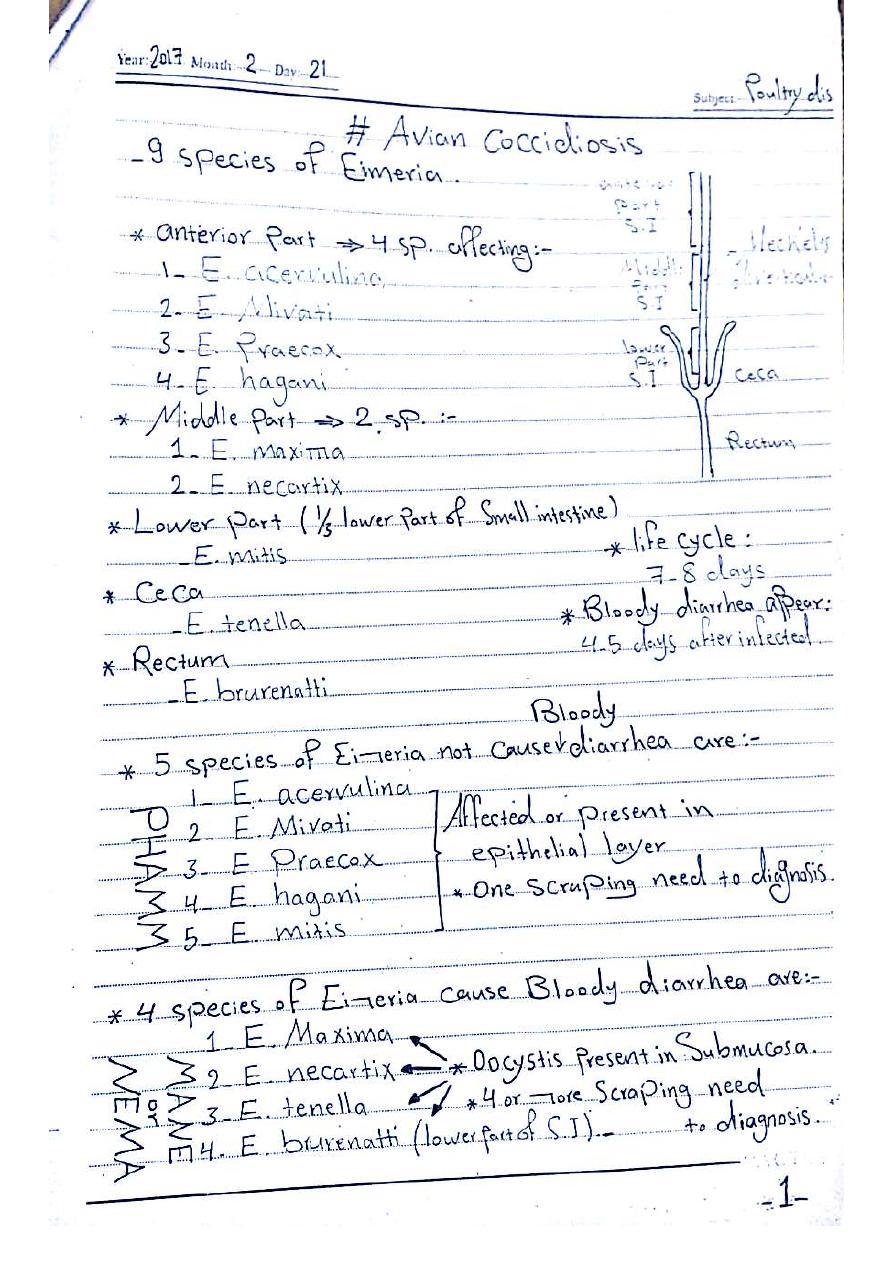 Year: 2017 Month: 2 Day: 21
Subject: Poultry dis
# Avian Coccidiosis
- 9 species of Eimeria.
* anterior Part ⇒ 4 sp. affecting:-
1- E. acervulina
2- E. Mivati
3- E. Praecox
4- E hagani
* Middle Part ⇒ 2 sp. :-
1- E. maxima
2- E. necartix
* Lower part (1/3 lower Part of Small intestine)
- E. mitis
* Ceca
- E. tenella
* Rectum
- E. brurenatti
Part
S.I
Middle
Part
S.I
lower
Part
S.I
Ceca
Rectum
* life cycle :
7-8 days
* Bloody diarrhea appear:
4-5 days after infected
Bloody
* 5 species of Eimeria not cause diarrhea are:-
1- E. acervulina
2 E. Mivati
3- E Praecox
4- E. hagani
5- E. mitis
Affected or present in
epithelial layer
* One Scraping need to diagnosis.
* 4 species of Eimeria cause Bloody diarrhea are:-
1 E. Maxima
2 E. necartix
3- E. tenella
4. E. brurenatti (lower part of S.I).
* Oocystis Present in Submucosa.
* 4 or more Scraping need
to diagnosis.
or
-1-